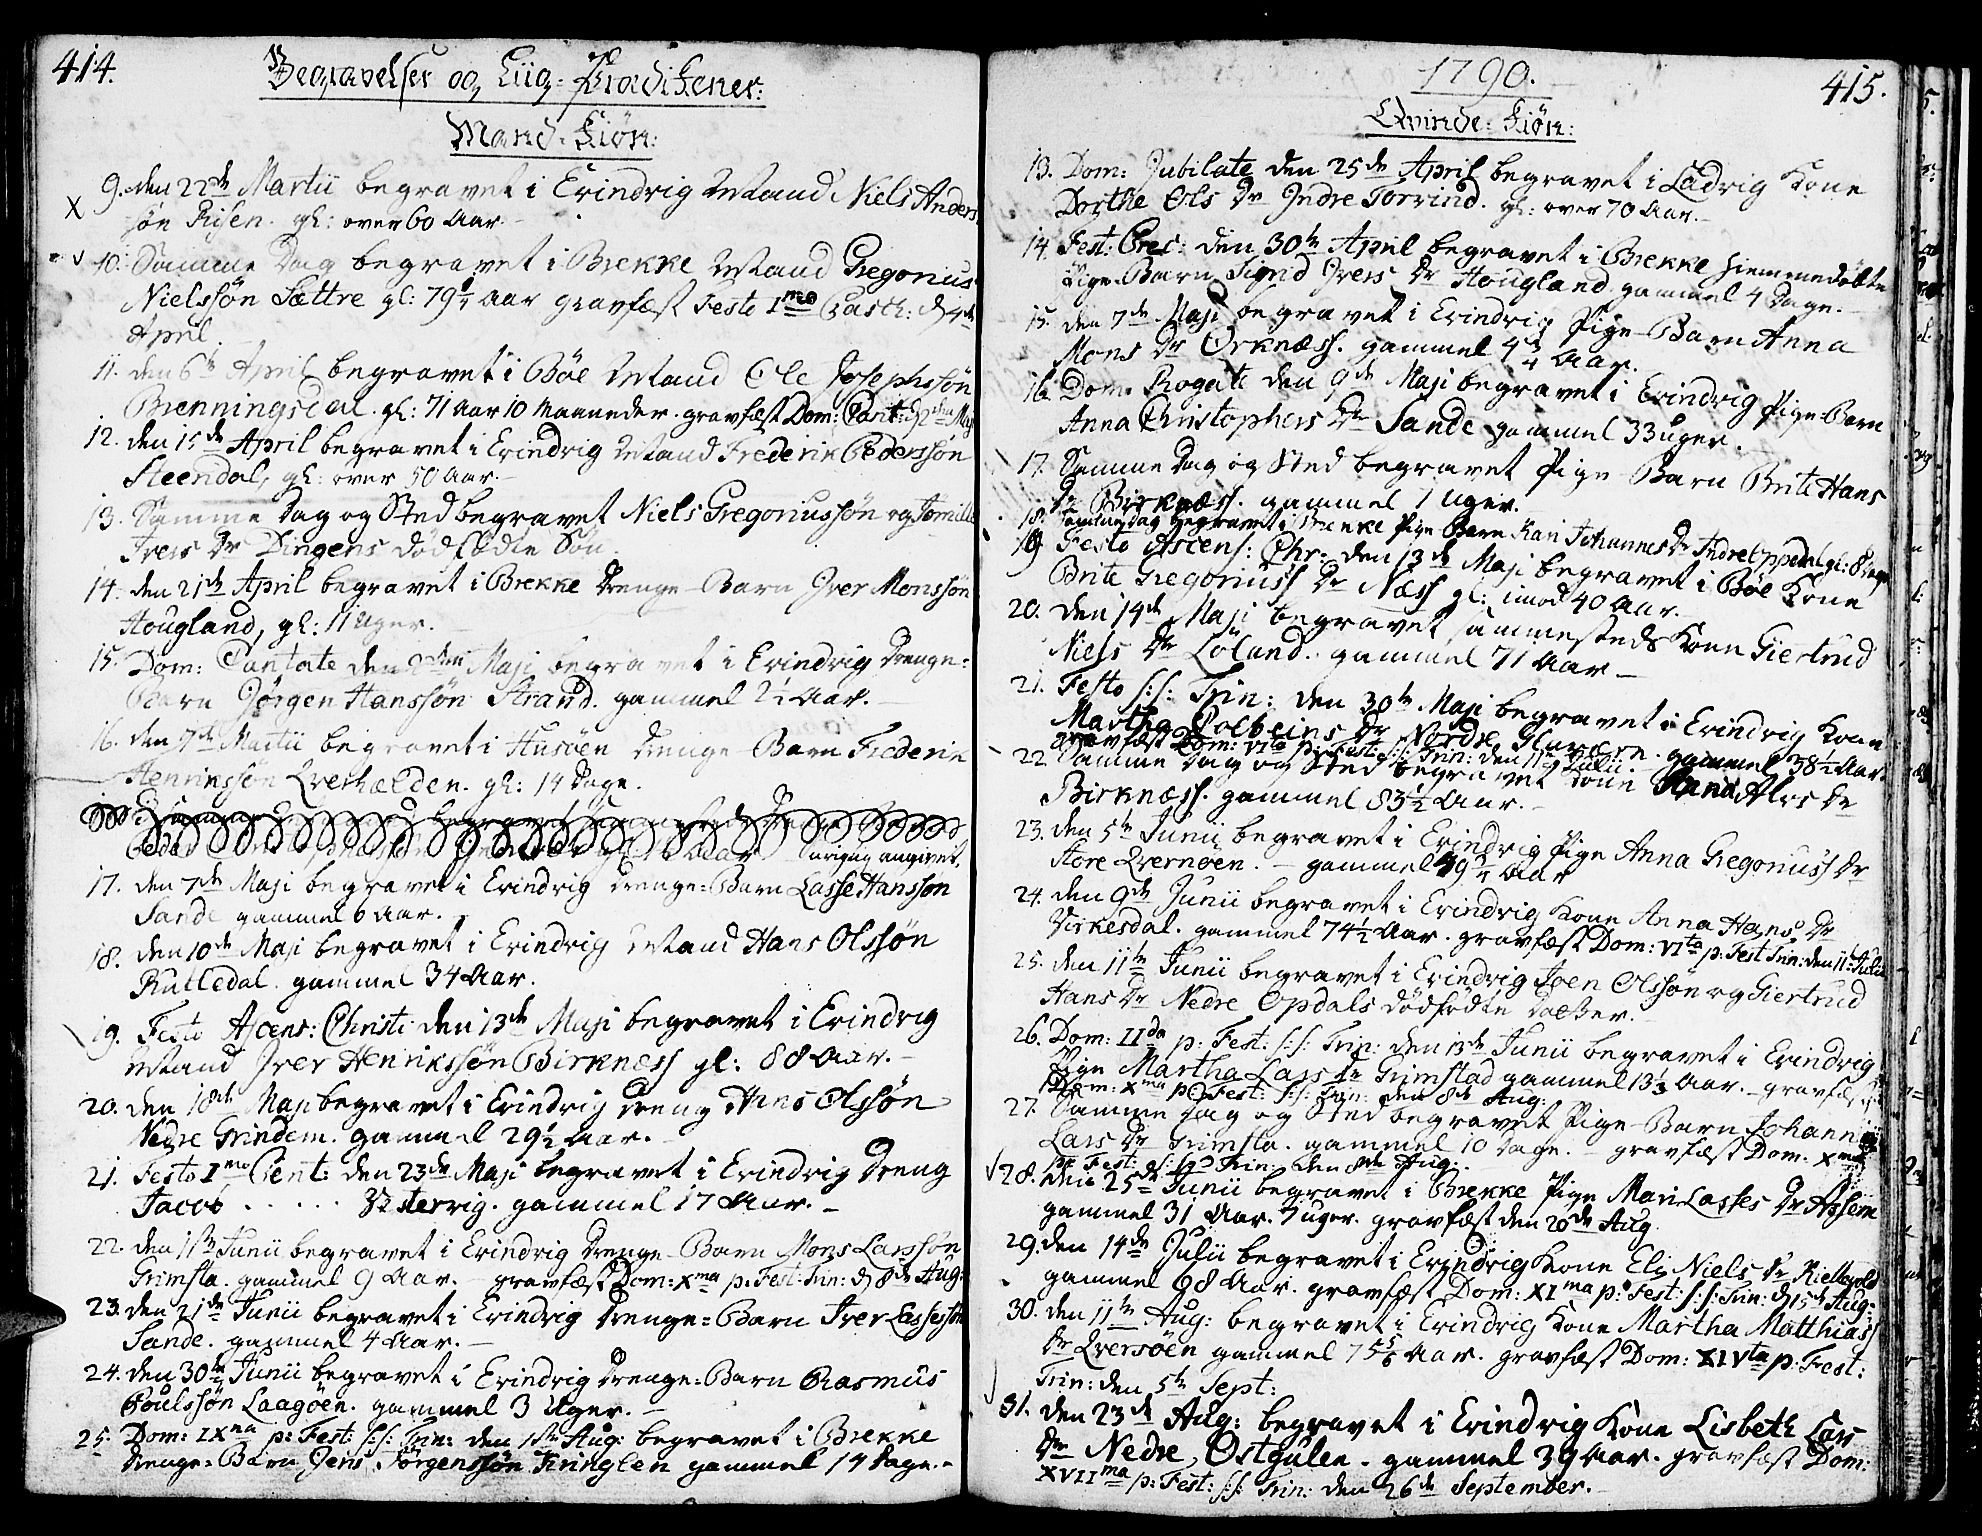 414.
Begravelser og Liig-Prædikener:
Mand-Kiøn:
9. den 22de Martii begravet i Evindvig Mand Niels Anders
søn Risen. gl: over 60 Aar.
10. Samme Dag begravet i Brekke Mand Gregorius
Nielssøn Sættre gl: 79½ Aar gravfæst Festo Imo Pasch: d 4de
April.
11. den 6te April begravet i Bøe Mand Ole Josephssøn
Brenningsdal. gl: 71 Aar 10 Maaneder. gravfæst Dom: Cant: d 2den Maji
12. den 15de April begravet i Evindvig Mand Frederik Pederssøn
Steendal, gl: over 50 Aar.
13. Samme Dag og Sted begravet Niels Gregoriussøn og
Ivers Dr Dingens dødfødte Søn.
14. den 21de April begravet i Brekke Drenge-Barn Iver Monssøn
Hougland, gl: 11 Uger.
15. Dom: Cantate den 2den Maji begravet i Evindvig Drenge-
Barn Jørgen Hanssøn Strand. gammel 2¼ Aar.
16. den 7de Martii begravet i Husøen Drenge-Barn Frederik
Henrikssøn Qverhælden. gl: 14 Dage.
urigtig angivet.
17. den 7de Maji begravet i Evindvig Drenge-Barn Lasse Hanssøn
Sande gammel 6 Aar.
18. den 10de Maji begravet i Evindvig Mand Hans Olssøn
Rutledal. gammel 34 Aar.
19. Festo Ascens: Christi den 13de Maji begravet i Evindvig
Mand Iver Henrikssøn Birknæss gl: 88 Aar.
20. den 18de Maji begravet i Evindvig Dreng Hans Olssøn
Nedre Grindem. gammel 29½ Aar.
21. Festo Imo Pent: den 23de Maji begravet i Evindvig Dreng
Jacob . . . . . Ytstervig. gammel 17 Aar.
22. den 11te Junii begravet i Evindvig Drenge-Barn Mons Larssøn
Grimsta. gammel 9 Aar. gravfæst Dom: Xma p: Fest: Trin: d 8de Aug:
23. den 21de Junii begravet i Evindvig Drenge-Barn Iver Lassessøn
Sande. gammel 4 Aar.
24. den 30te Junii begravet i Evindvig Drenge-Barn Rasmus
Poulssøn Laagøen. gammel 3 Uger.
25. Dom: IXna p: Fest: S:S: Trin: den 1ste Aug: begravet i Brekke
Drenge-Barn Jens Jørgenssøn gammel 14 Dage.
1790. 415.
Qvinde-Kiøn:
13. Dom: Jubilate den 25de April begravet i Ladvig Kone
Dorthe Ols Dr Indre Torvind. gl: over 70 Aar.
14. Fest: Prec: den 30te April begravet i Brekke hiemmedøbte
Pige-Barn Sigrid Ivers Dr Hougland. gammel 4 Dage.
15. den 7de Maji begravet i Evindvig Pige-Barn Anna
Mons Dr Orknæss. gammel 4¾ Aar.
16. Dom: Rogate den 9de Maji begravet i Evindvig Pige-Barn
Anna Christophers Dr Sande gammel 33 Uger.
17. Samme Dag og Sted begravet Pige-Barn Brite Hans
Dr Birknæss. gammel 1 Uger.
18. Samme Dag begravet i Brekke Pige Barn Kari Johannes Dr Indre Oppedal gl: 8 Dage
19 Festo Ascens: Chr: den 13de Maji begravet i Bøe Kone
Brite Gregoriuss Dr Næss gl: imod 40 Aar.
20. den 14de Maji begravet sammesteds Kone Giertrud
Niels Dr Løland. gammel 71 Aar
21. Festo S:S: Trin: den 30te Maji begravet i Evindvig Kone
Martha Colbeins Dr Nordre gammel 38½ Aar.
gravfæst Dom: VIta p: Fest: S:S: Trin: den 11te Julii.
22. Samme Dag og Sted begravet Kone Anna Alvs Dr
Birknæss. gammel 83½ Aar.
23. den 5te Junii begravet i Evindvig Pige Anna Gregoriuss Dr
Store Qvernøen. gammel Aar
24. den 9de Junii begravet i Evindvig Kone Anna Hans Dr
Virkesdal. gammel 74½ Aar. gravfæst Dom: VIta p: Fest Trin: den 11te Julii
25. den 11te Junii begravet i Evindvig Joen Olssøn og Giertrud
Hans Dr Nedre Opdals dødfødte Datter.
26. Dom: IIda p: Fest: S:S: Trin: den 13de Junii begravet i Evindvig
Pige Martha Lars Dr Grimstad gammel 13⅓ Aar. gravfæst
Dom: Xma p: Fest: S:S: Trin: den 8de Aug:
27. Samme Dag og Sted begravet Pige-Barn Johanna
Lars Dr Grimsta. gammel 10 Dage. gravfæst Dom. Xma
p: Fest: S:S: Trin: den 8de Aug:
28. den 25de Junii begravet i Brekke Pige Mari Lasses Dr Assem
gammel 31 Aar. 7 Uger. gravfæst den 20de Aug.
29. den 14de Julii begravet i Evindvig Kone Eli Niels Dr
gammel 98 Aar. gravfæst Dom: XIma p: Fest: S:S: Trin: d 15de Aug:
30. den 11te Aug: begravet i Evindvig Kone Martha Matthiass
Dr Qversøen gammel 75⅚ Aar. gravfæst Dom: XIVta p: Fest:
Trin: den 5te Sept:
31. den 23de Aug: begravet i Evindvig Kone Lisbeth Lars
Dr Nedre Østgulen. gammel 39 Aar. gravfæst Dom:
XVIIma p: Fest: S:S: Trin: den 26de September.